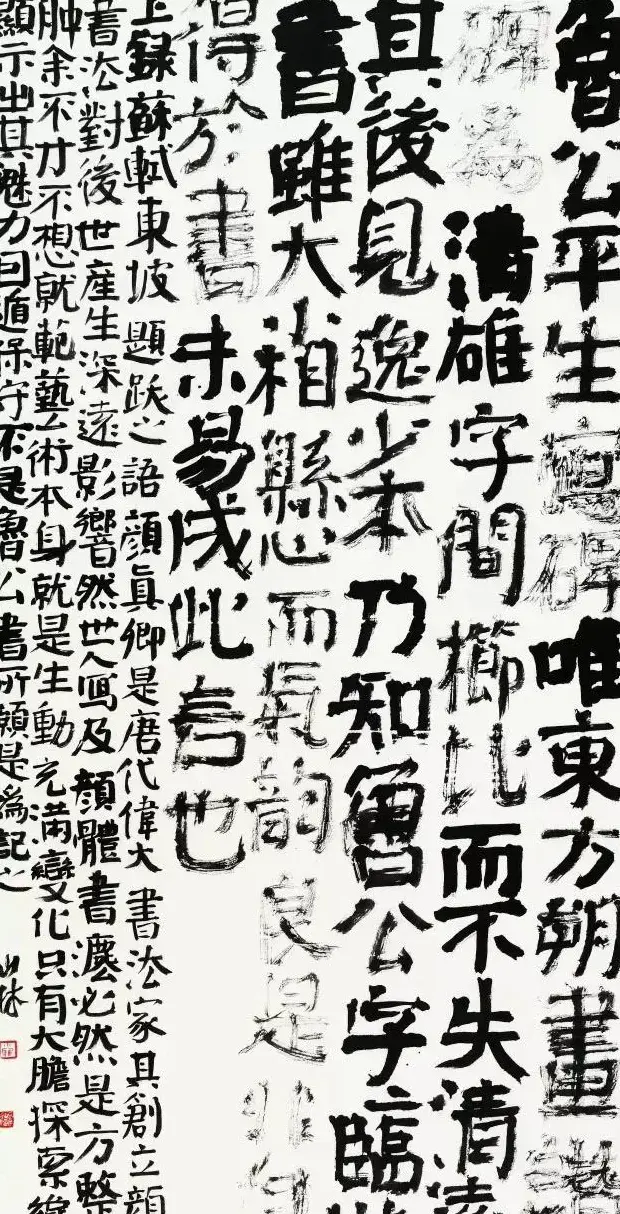 魯公平生寫碑唯東方朔畫讃
碑為清雄字間櫛比而不失清遠
其後見逸少本乃知魯公字臨此
書雖大相懸而氣韵良是非自
得於書未易為此言也
上録蘇軾東坡題跋之語顔真卿是唐代偉大書法家其創立顔
書法對後世産生深遠影響然世人寫及顔體書灋必然是方整
肿余不才不想就範藝術本身就是生動充滿變化只有大膽探索
顯示出其魅力因循保守不是魯公書所願是為記之